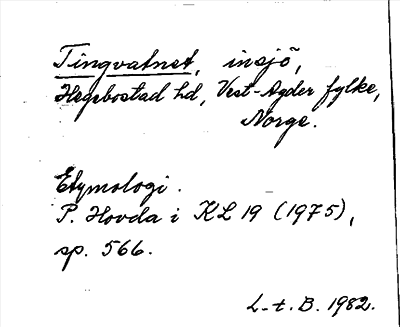 Tingvatnet, insjö,
Hegebostad hd, Vest-Agder fylke,
Norge.
Etymologi.
P. Hovda i KL 19 (1975),
sp. 566.
L-t. B. 1982.